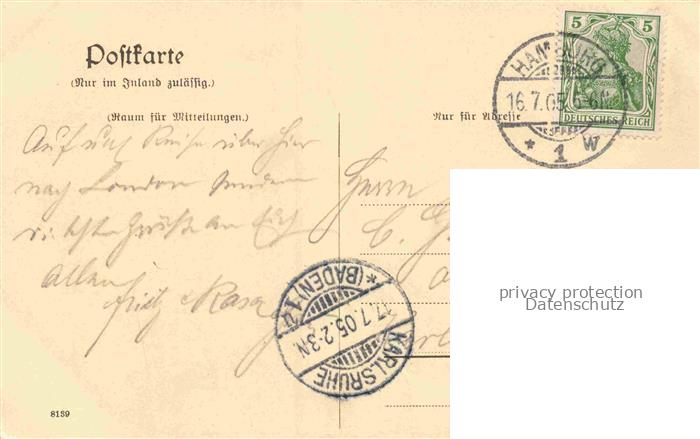 Postkarte
(Nur im Inland zulässig.)
(Raum für Mitteilungen.)
Nur für Adresse
5 5
DEUTSCHES REICH
HAMBURG
16.7.05. 5-6N
* 1 W
Auf uns Reise über hier
nach London senden
wir Grüße an Euch
allen
Fritz
Herrn
C. G.
KARLSRUHE
17.7.05. 2-3N
* (BADEN) 1
8139
privacy protection
Datenschutz